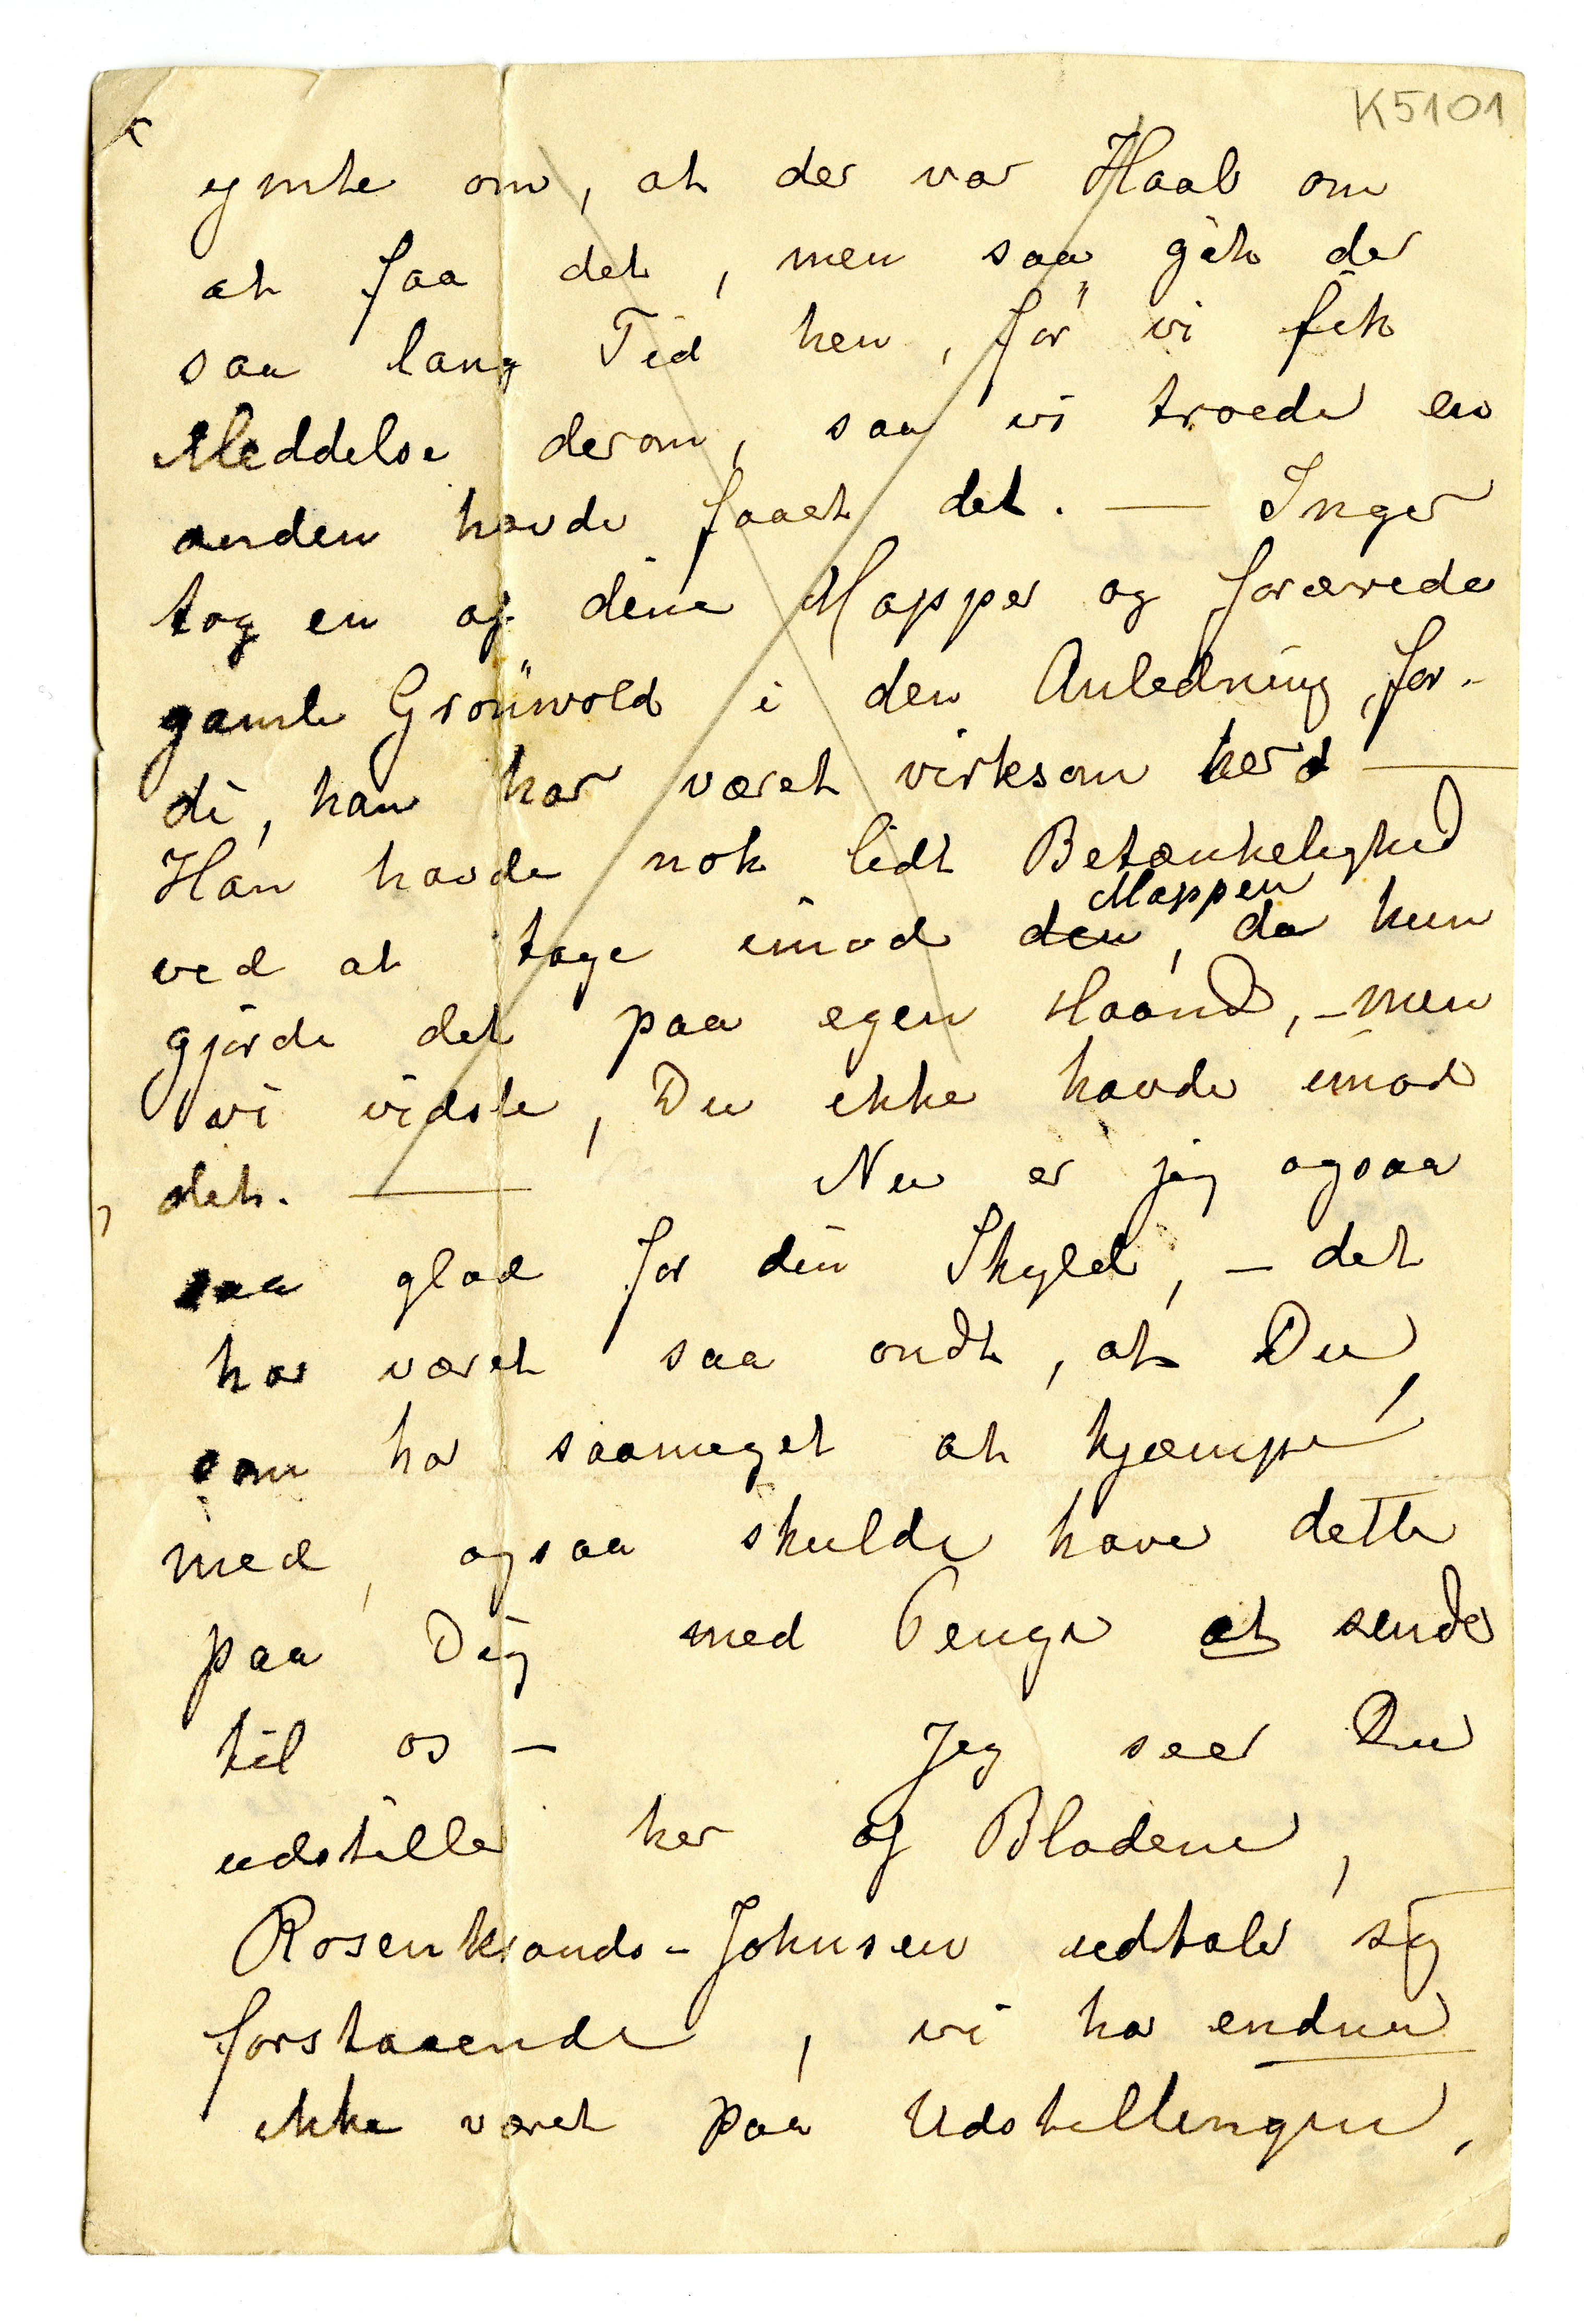 K5101
ymte om, at der var Haab om
at faa det, men saa gik der
saa lang Tid hen, før vi fik
Meddelse derom, saa vi troede en
anden havde faaet det. — Inger
tog en af dine Mapper og forærede
gamle Grönvold i den Anledning, for-
di, han har været virksom her —
Han havde nok lidt Betænkelighed
Mappen
ved at tage imod den, da hun
gjørde det paa egen Haand, – men
vi vidste, Du ikke havde imod
det. — Nu er jeg ogsaa
saa glad for din Skyld, – det
har været saa ondt, at Du,
som har saameget at kjæmpe
med, ogsaa skulde have dette
paa Dig med Penge at sende
til os – Jeg seer Du
udstiller her af Bladene,
Rosenkrands-Johnsen udtaler sig
forstaaende, vi har endnu
ikke været paa Udstillingen,